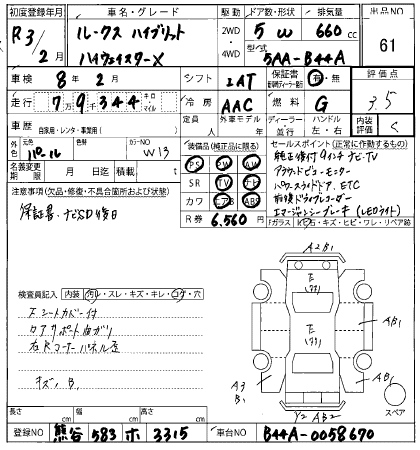 初度登録年月 車名・グレード 駆動 ドア数・形状 排気量 出品NO
R3/2月 ルークス ハイブリット ハイウェイスターX 2WD・4WD 5 W 660cc 61
型式 5AA-B44A
車検 8年2月 シフト IAT 保証書 有・無 評価点
走行 79344 キロ・マイル 冷房 AAC 燃料 G 3.5
車歴 自家用・レンタ・事業用( ) 定員 人 外車モデル 年 ディーラー・並行 ハンドル 左・右 内装評価 C
外色 元色 パール 色替 カラーNO W13
装備品(純正品に限る) セールスポイント(正常に作動するもの)
名義変更期限 月 日迄 積載量 t
PS PW AW
純正後付9インチナビ・TV
アラウンドビューモニター
注意事項(欠品・修復・不具合箇所および状態)
SR TV ナビ
パワースライドドア、ETC
保証書・ナビSD後日
カワ エアB ABS
前後ドライブレコーダー
エマージェンシーブレーキ(LEDライト)
R券 6,560円
Fガラス キズ・ヒビ・ワレ・リペア跡
検査員記入 内装 汚レ・スレ・キズ・キレ・コゲ・穴
シートカバー付
コアサポート曲ガリ
右Rコーナーパネル歪
キズ、B
A2B1
AB1
A3
B1
AB1
Y2 AB2
スペア
長さ cm 幅 cm 高さ cm
登録NO 熊谷 583 ホ 3315 車台NO B44A-0058670